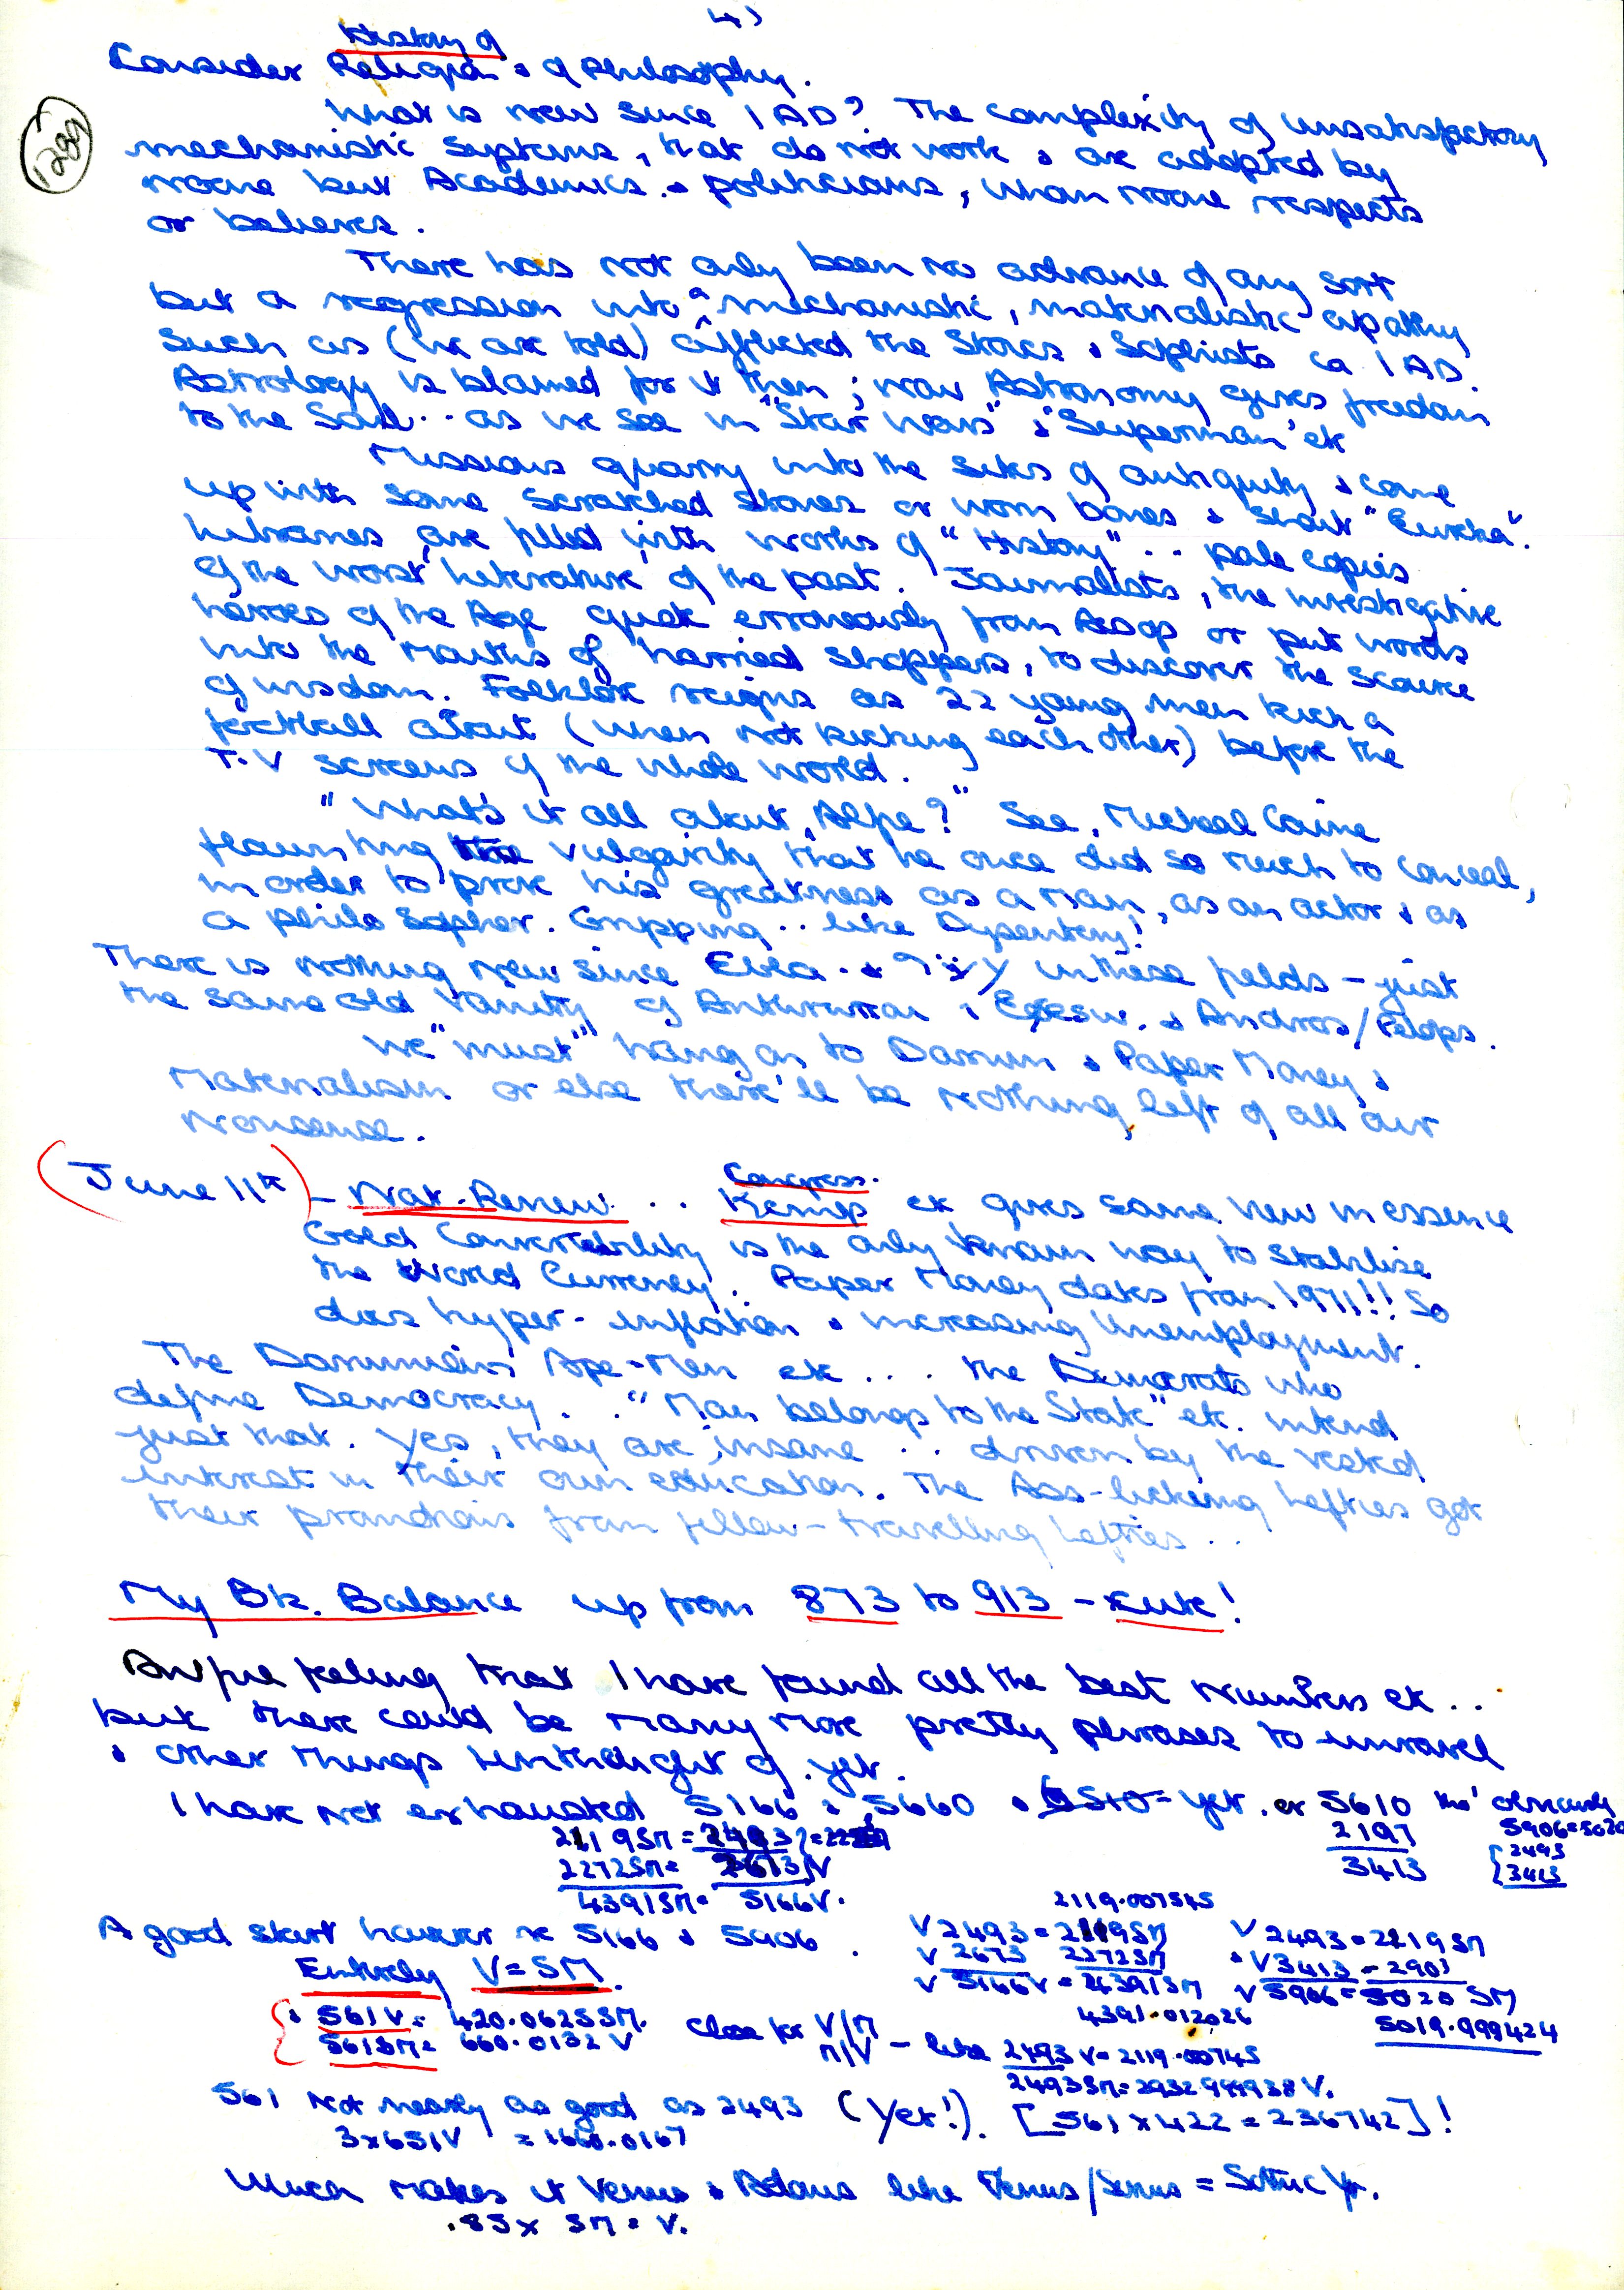 4)
History of
Consider Religion & of Philosophy.
1289
What is new since 1 AD? The complexity of unsatisfactory
mechanistic systems, that do not work & are adopted by
noone but Academics & politicians, whom noone respects
or believes.
There has not only been no advance of any sort
but a regression into a mechanistic, materialistic apathy
such as (we are told) afflicted the Stoics & Sophists ca 1 AD.
Astrology is blamed for it then; now Astronomy gives freedom
to the Soul.. as we see in "Star Wars" & "Superman" etc
Missions quarry into the sites of antiquity & come
up with some scratched stones or worn bones & shout "Eureka".
Libraries are filled with works of "History".. pale copies
of the worst literature of the past. Journalists, the investigative
heroes of the Age quote erroneously from Aesop or put words
into the mouths of harried shoppers, to discover the source
of wisdom. Folklore reigns as 22 young men kick a
football about (when not kicking each other) before the
T.V screens of the whole world.
"What's it all about, Alfie?" See, Micheal Caine
flaunting the vulgarity that he once did so much to conceal,
in order to prove his greatness as a man, as an actor & as
a philosopher. Gripping.. like Dysentery!
There is nothing new since Ebla. & in these fields – just
the same old vanity of & & Andros/Pelops.
We "must" hang on to Darwin & Paper Money &
Materialism or else there'll be nothing left of all our
nonsense.
(June 11th) – Nat. Review .. Congress. Kemp etc gives same view in essence
Gold Convertibility is the only known way to stabilise
the World Currency. Paper Money dates from 1971!! So
does hyper-inflation & increasing Unemployment.
The Darwinian Ape-Men etc .... the Democrats who
define Democracy.. "Man belongs to the State" etc. intend
just that. Yes, they are insane .. driven by the vested
interest in their own education. The Ass-licking Lefties got
their promotions from fellow-travelling Lefties..
My Bk. Balance up from 873 to 913 – !
Awful feeling that I have found all the best numbers etc ..
but there could be many more pretty phrases to unravel
& other things unthought of yet.
I have not exhausted 5166 & 5660 & yet. or 5610 tho' obviously
2119SM = 2493
2272SM = 2673 } V
4391SM = 5166V.
2197
3413
5906=5020
2493
3413
A good start however re 5166 & 5906.
2119.007545
V 2493 = 2119SM
V 2673 2272SM
V 5166V = 4391SM
4391.012026
V 2493 = 2119SM
& V3413 = 2901
V 5906 = 5020 SM
5019.999424
Entirely V = SM.
& 561V = 420.0625SM.
561SM = 660.0132V
Close for V/M
M/V – like 2493V = 2119.00745
2493SM = 2932.999938V.
561 not nearly as good as 2493 (yet!). [561 x 422 = 236742]!
3x651V = 1660.0167
Which makes it Venus & like Venus/ = Sothic Yr.
.85 x SM = V.